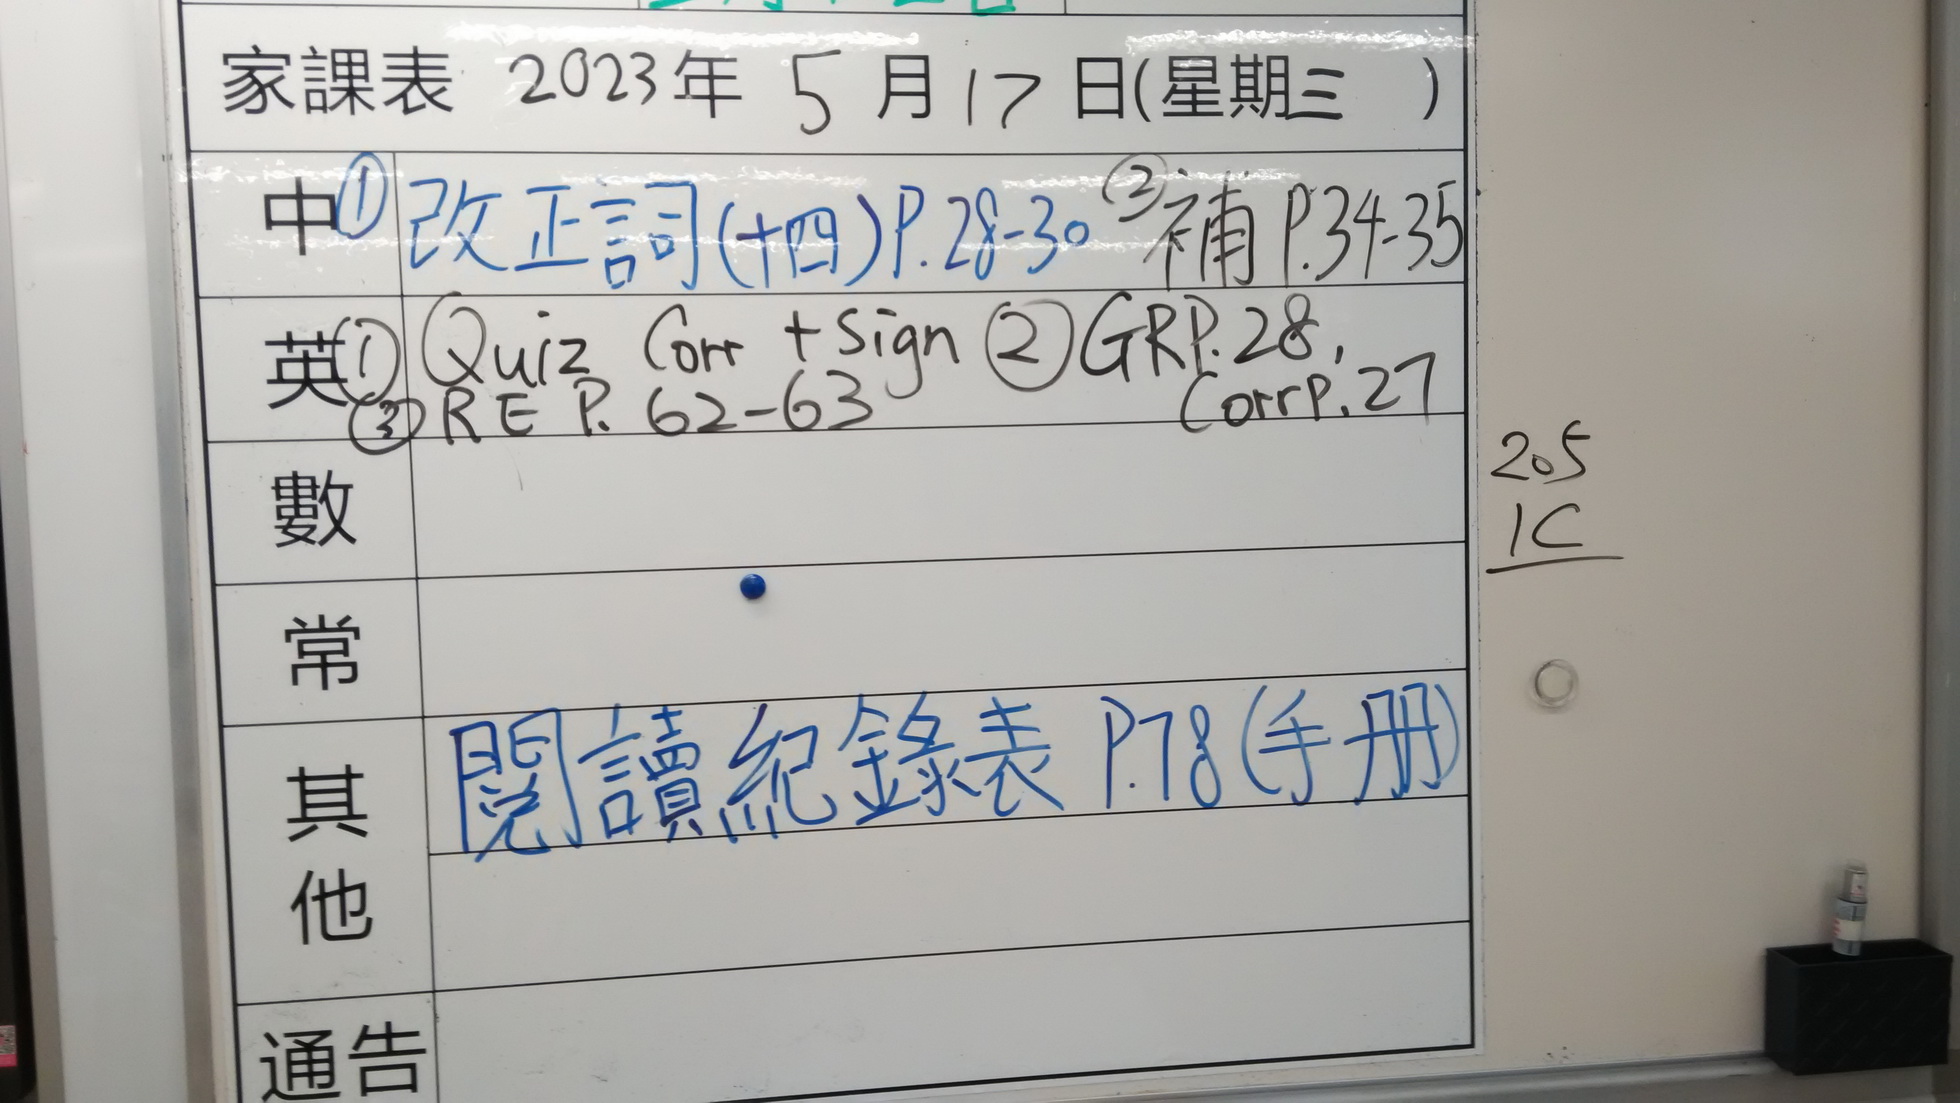 家課表 2023年 5月17日(星期三 )
中 ①改正詞(十四)P.28-30 ②補 P.34-35
英 ① Quiz Corr + Sign ② GRP.28,
Corrp.27
③ RE P. 62-63
數
常
其他
閱讀紀錄表 P.78(手册)
通告
205
1C